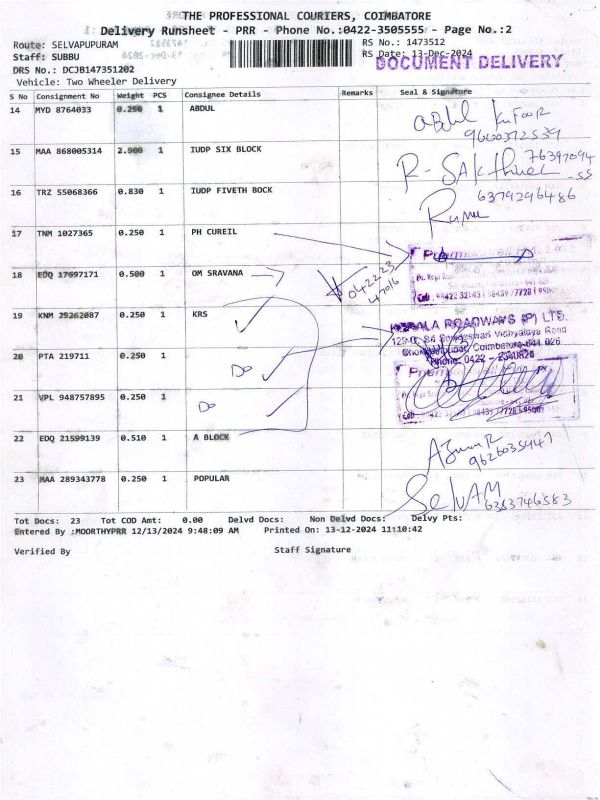 THE PROFESSIONAL COURIERS, COIMBATORE
Delivery Runsheet - PRR - Phone No.:0422-3505555 - Page No.:2
Route: SELVAPUPURAM
RS No.: 1473512
Staff: SUBBU
RS Date: 13-Dec-2024
DOCUMENT DELIVERY
DRS No.: DCJB147351202
Vehicle: Two Wheeler Delivery
S No Consignment No Weight PCS Consignee Details Remarks Seal & Signature
14 MYD 8764033 0.250 1 ABDUL
15 MAA 868005314 2.900 1 IUDP SIX BLOCK
16 TRZ 55068366 0.830 1 IUDP FIVETH BOCK
6379296486
17 TNM 1027365 0.250 1 PH CUREIL
18 EDQ 17697171 0.500 1 OM SRAVANA
19 KNM 29262087 0.250 1 KRS
KERALA ROADWAYS (P) LTD.
Coimbatore-641 026
Phone: 0422 - 2340826
20 PTA 219711 0.250 1 Do
21 VPL 948757895 0.250 1 Do
22 EDQ 21599139 0.510 1 A BLOCK
23 MAA 289343778 0.250 1 POPULAR
SelVAM
6363746583
Tot Docs: 23 Tot COD Amt: 0.00 Delvd Docs: Non Delvd Docs: Delvy Pts:
Entered By :MOORTHYPRR 12/13/2024 9:48:09 AM Printed On: 13-12-2024 11:10:42
Verified By Staff Signature